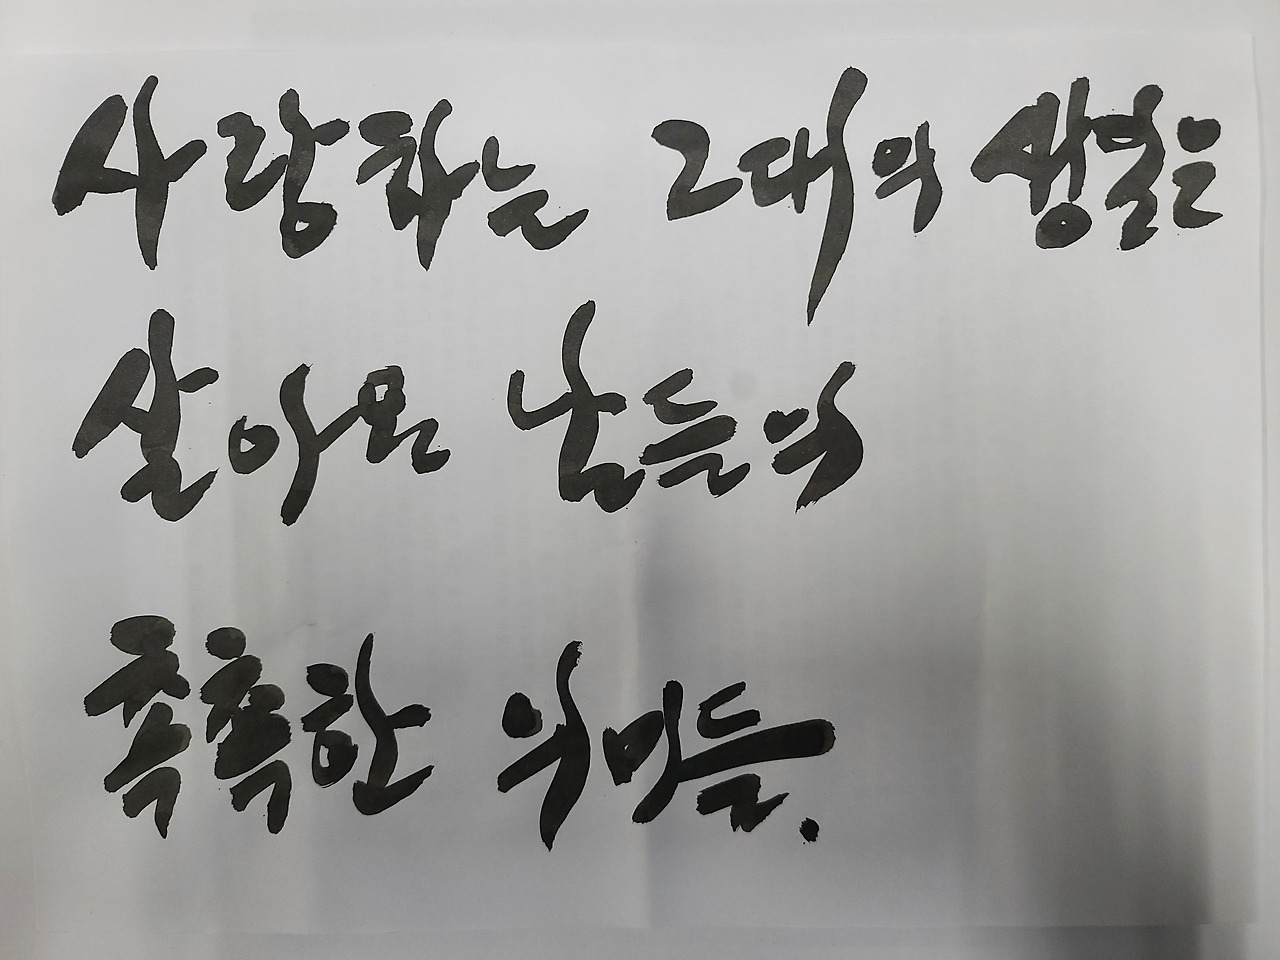 사랑하는 그대의 생일은
살아온 날들의
촉촉한 의미들.